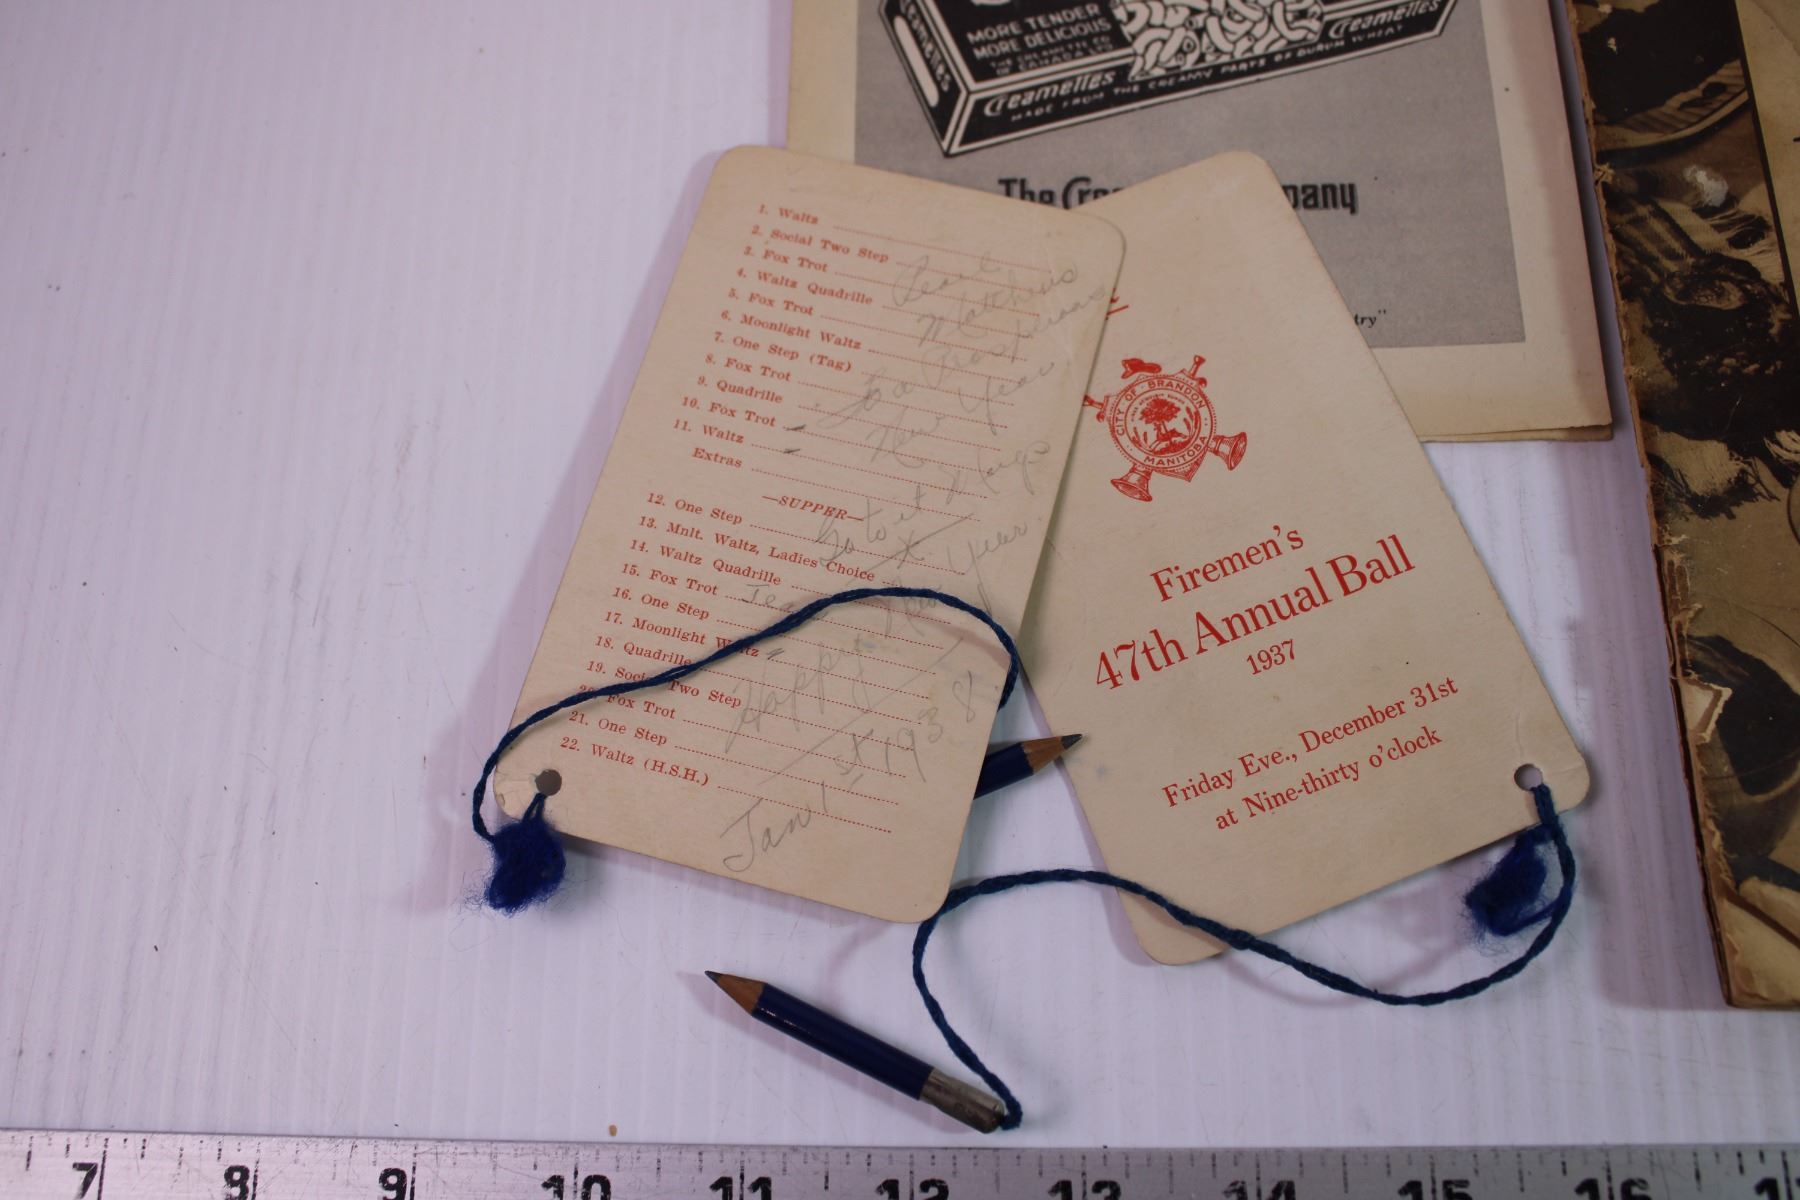 MORE TENDER
MORE DELICIOUS
THE CREAMETTE CO
OF CANADA LTD
Creamettes
Creamettes
Creamettes
MADE FROM THE CREAMY PARTS OF DURUM WHEAT
The Cre
pany
try"
1. Waltz
2. Social Two Step
3. Fox Trot
4. Waltz Quadrille
5. Fox Trot
6. Moonlight Waltz
7. One Step (Tag)
8. Fox Trot
9. Quadrille
10. Fox Trot
11. Waltz
Extras
—SUPPER—
12. One Step
13. Mnlt. Waltz, Ladies Choice
14. Waltz Quadrille
15. Fox Trot
16. One Step
17. Moonlight Waltz
18. Quadrille
19. Social Two Step
20. Fox Trot
21. One Step
22. Waltz (H.S.H.)
Pearl
Matthews
Prosperous
New Year
Go to it
Happy New Year
Jan 1st 1938
CITY OF BRANDON
MANITOBA
Firemen's
47th Annual Ball
1937
Friday Eve., December 31st
at Nine-thirty o'clock
7 8 9 10 11 12 13 14 15 16